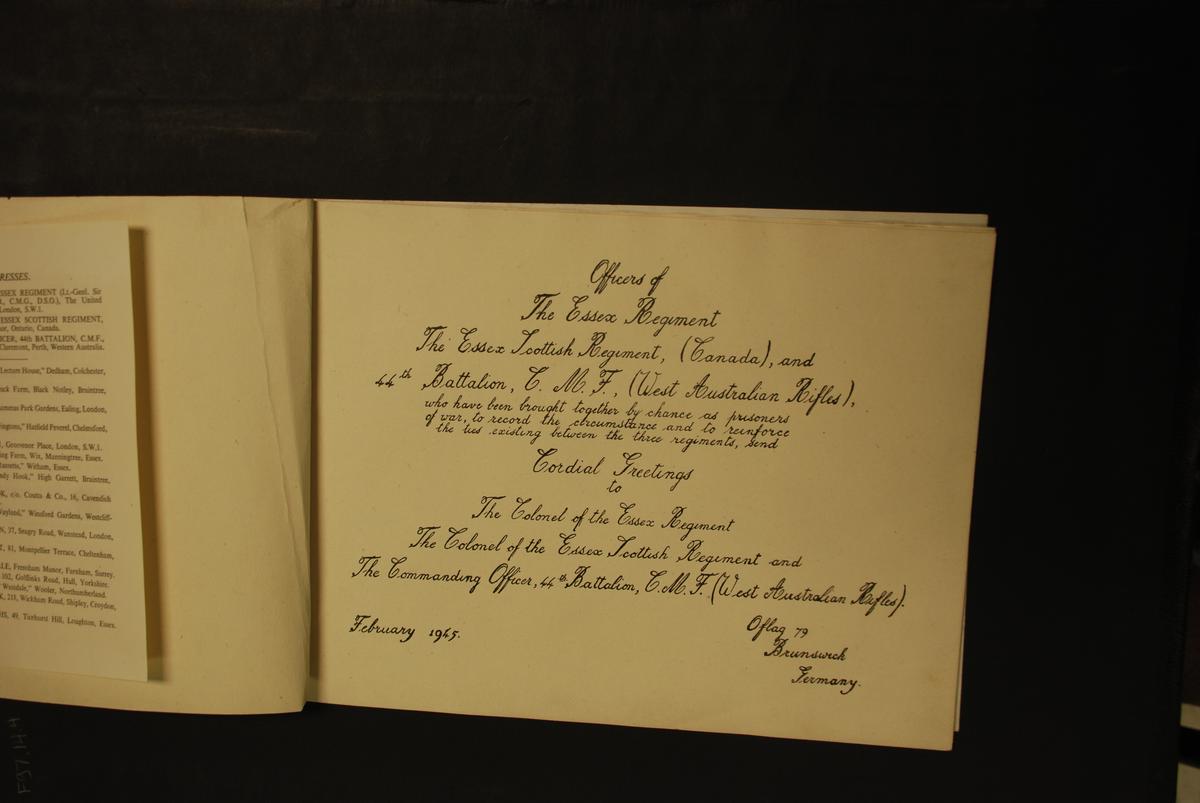 RESSES.
SSEX REGIMENT (Lt.-Genl. Sir
C.M.G., D.S.O.), The United
London, S.W.1.
ESSEX SCOTTISH REGIMENT,
or, Ontario, Canada.
ICER, 44th BATTALION, C.M.F.,
Claremont, Perth, Western Australia.
Lecture House," Dedham, Colchester,
ock Farm, Black Notley, Braintree,
Park Gardens, Ealing, London,
Hatfield Peverel, Chelmsford,
Grosvenor Place, London, S.W.1.
ing Farm, Wix, Manningtree, Essex.
Witham, Essex.
ndy Hook," High Garrett, Braintree,
K, c/o. Coutts & Co., 16, Cavendish
Wayland," Winsford Gardens, Westcliff-
N, 37, Seagry Road, Wanstead, London,
T, 81, Montpellier Terrace, Cheltenham,
LE, Frensham Manor, Farnham, Surrey.
102, Golflinks Road, Hull, Yorkshire.
Wooler, Northumberland.
K, 215, Wickham Road, Shipley, Croydon,
HS, 49, Hill, Loughton, Essex.
F97.144
Officers of
The Essex Regiment
The Essex Scottish Regiment, (Canada), and
44th Battalion, C. M. F., (West Australian Rifles),
who have been brought together by chance as prisoners
of war, to record the circumstance and to reinforce
the ties existing between the three regiments, send
Cordial Greetings
to
The Colonel of the Essex Regiment
The Colonel of the Essex Scottish Regiment and
The Commanding Officer, 44th Battalion, C.M.F. (West Australian Rifles).
February 1945.
Oflag 79
Brunswick
Germany.